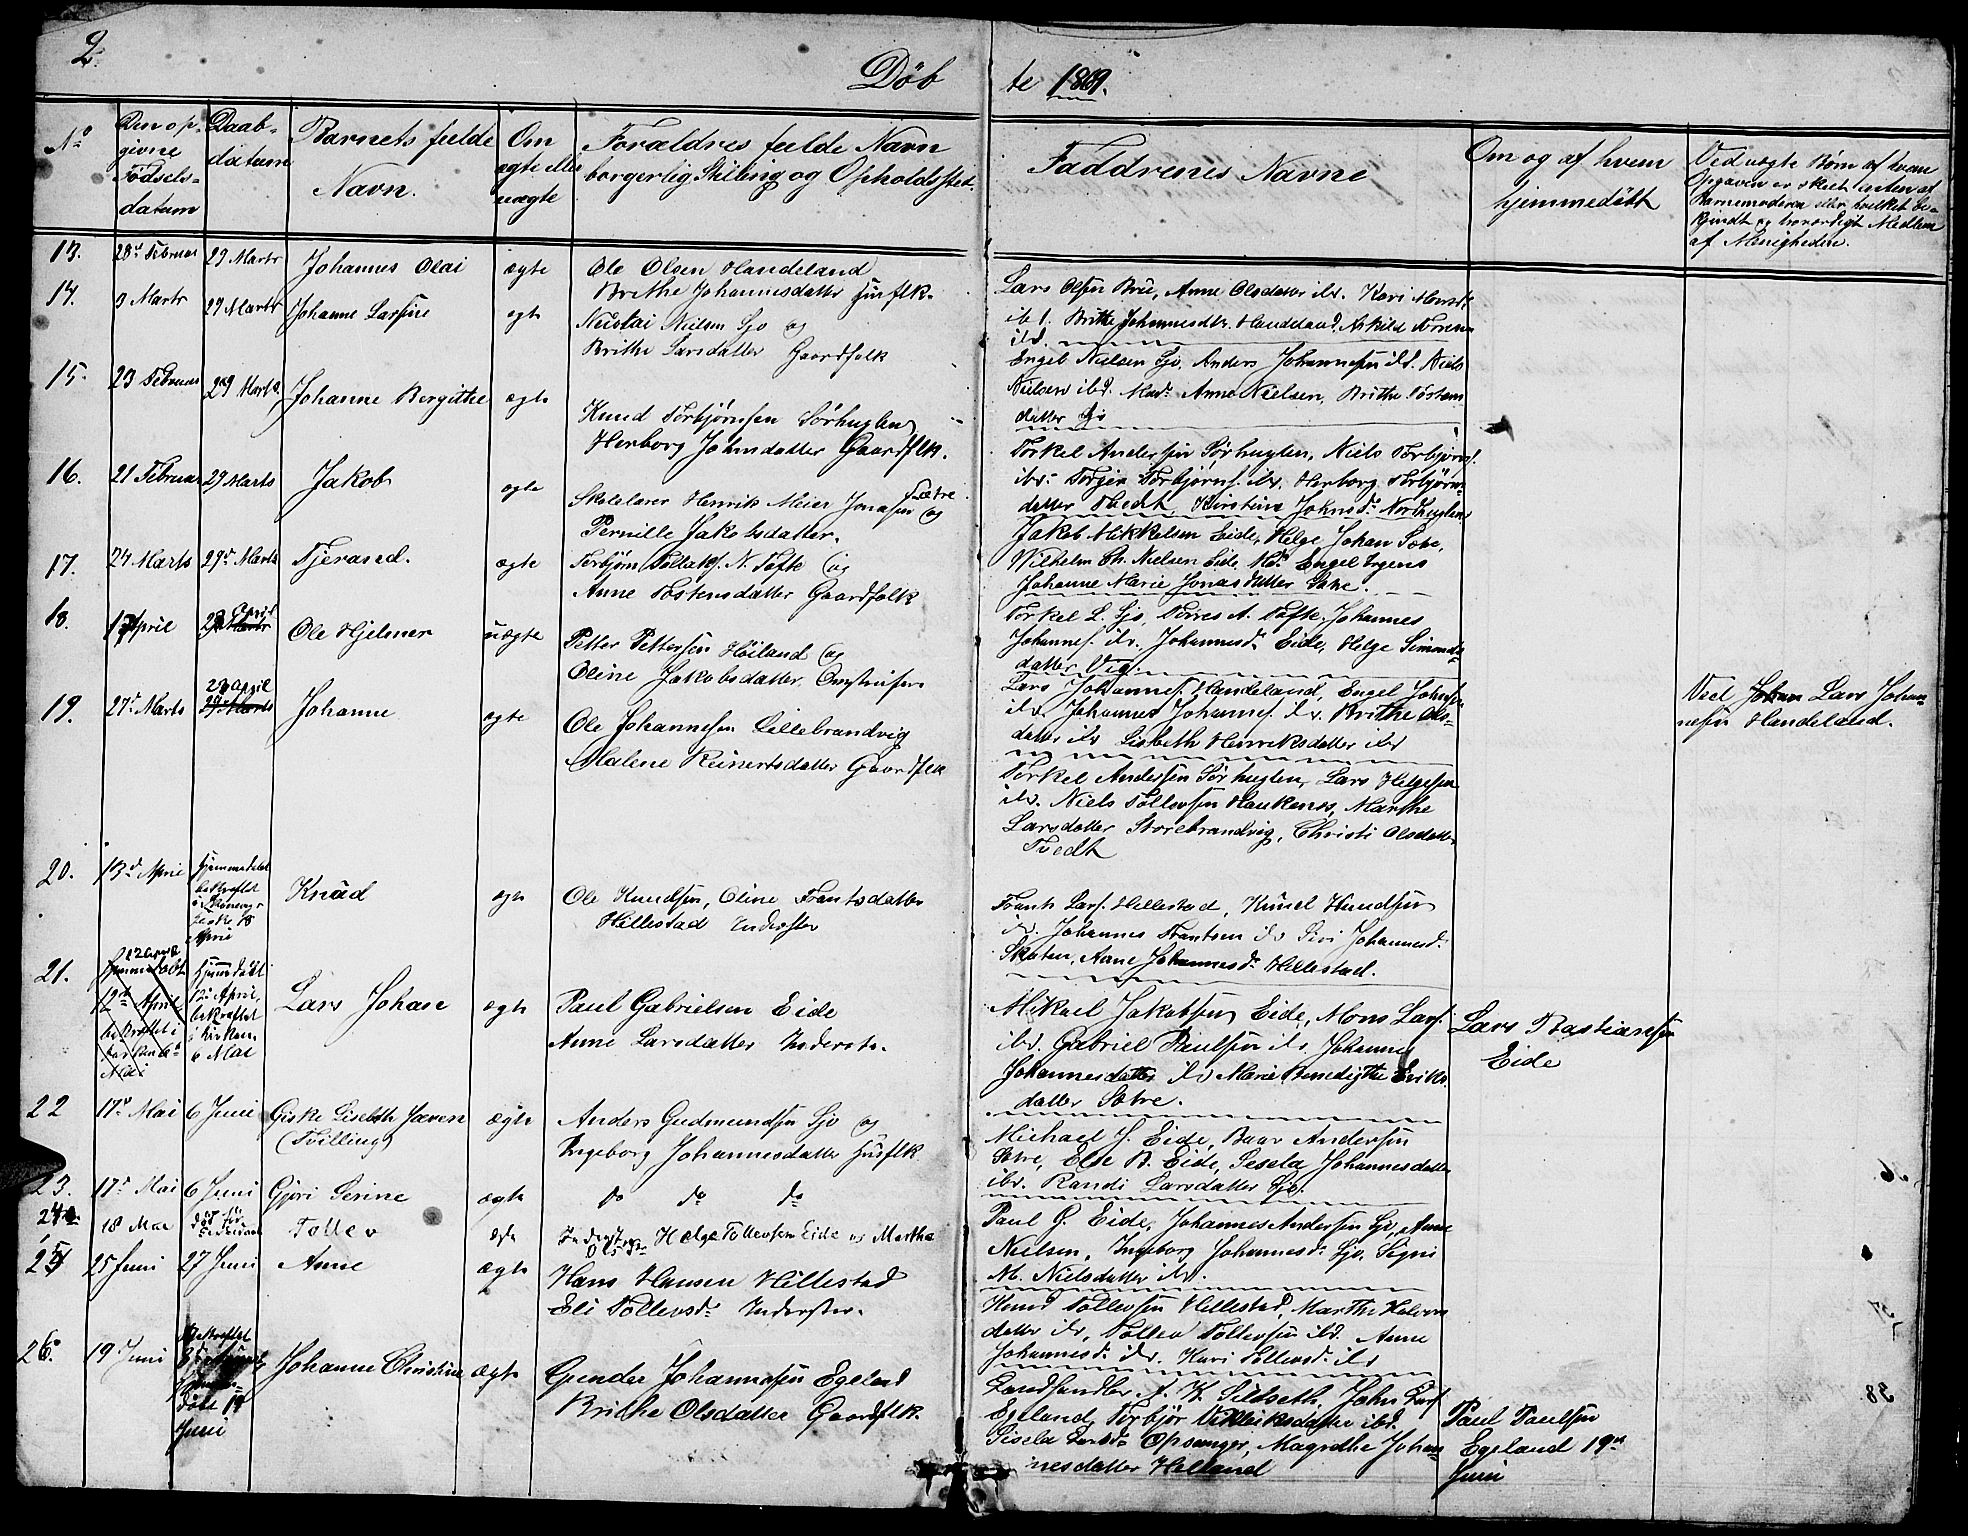 2.
Döbte 1869.
No
Den opgivne Födselsdatum
Daabdatum
Barnets fulde Navn.
Om ægte eller uægte
Forældres fulde Navn borgerlig Stilling og Opholdssted.
Faddrenes Navne
Om og af hvem hjemmedöbt
Ved uægte Børn af hvem Opgaven er skeet enten af Barnemoderen eller hvilket bekjendt og troværdigt Medlem af Menigheden.
13. 28d Februar 29 Marts Johannes Olai ægte
Ole Olsen Handeland
Brithe Johannesdatter Husflk.
Lars Olsen Brue, Anne Olsdatter ibd. Kari Monsd.
ibd. Brithe Johannesdtr. Handeland, Askild
ibd.
14. 9 Marts 29 Marts Johanne Larsine ægte
Nicolai Nielsen Sjo og
Brithe Larsdatter Gaardfolk
Engel Nielsen Sjo, Anders Johannesen ibd. Niels
Nielsen ibd. Mad. Anne Nielsen, Brithe Tostens
datter Sjo
15. 23 Februar 29 Marts Johanne Bergithe ægte
Knud Torbjörnsen Sörhuglen
Herborg Johnsdatter Gaardflk.
Torkel Andersen Sörhuglen, Niels Torbjörns.
ibd. Torger Torbjörns. ibd. Herborg Torbjörns
datter Tvedt, Kirstine Johnsd. Nordhuglen
16. 21 Februar 29 Marts Jakob ægte
Skolelærer Henrik Meier Jonasen Sætre og
Pernille Jakobsdatter.
Jakob Mikkelsen Eide, Helge Johan Sætre,
Wilhelm Ch. Nielsen Eide, Md. Engel Irgens
Johanne Marie Jonasdatter Sætre.
17. 24 Marts 29d Marts Tjerand. ægte
Torbjörn Tollaks. N. Tofte og
Anne Tostensdatter Gaardfolk
Torkel L. Sjo, Torres A. Tofte, Johannes
Johannes. ibd. Johannesd. Eide, Helge Simons
datter Vig.
18. 17 April 29 April Ole Hjelmer uægte
Petter Pettersen Höiland og
Oline Jakobsdatter
Lars Johannes. Handeland, Engel Johns
ibd. Johannes Johannes. ibd. Brithe Ols
datter ibd Lisbeth Henriksdatter ibd
Ved Johan Lars Johan
nesen Handeland.
19. 27d Marts 29 April 29 Marts Johanne ægte
Ole Johannesen Lillebrandvig
Malene Reinertsdatter Gaardflk
Torkel Andersen Sörhuglen, Lars Helgesen
ibd. Niels Tollevsen Haukenes, Marthe
Larsdatter Storebrandvig, Christi Olsdatter
Tvedt
20. 13d April Hjemmedöbt bekræftet i Skonevigs Kirke 18 April Knud ægte
Ole Knudsen, Oline Frantsdatter
Hillestad Inderster
Frants Lars. Hillestad, Knud Knudsen
ibd. Johannes Frantsen ibd Siri Johannesd.
Skaten, Anne Johannesd. Hillestad.
21. 12 April Hjemmedöbt 12d April bekræftet i Kirken 6 Mai
Hjemmedöbt 12 April, bekræftet i Kirken 6 Mai Lars Johan ægte
Paul Gabrielsen Eide
Anne Larsdatter Inderste.
Mikael Jakobsen Eide, Mons Lars.
ibd. Gabriel Paulsen ibd. Johanne
Johannesdatter ibd Marie Benedigthe Eriks
datter Sætre.
Lars Bastiansen
Eide
22 17d Mai 6 Juni Giske Liselth Javen (Tvilling) ægte
Anders Gudmundsen Sjo og
Ingeborg Johannesdatter Husflk
Michael J. Eide, Baar Andersen
Sætre, Else B. Eide, Sesela Johannesdatter
ibd. Randi Larsdatter Sjo.
23. 17d Mai 6 Juni Gjöri Serine ægte
do do do
Paul G. Eide, Johannes Andersen Sjo, Anne
Nielsen, Ingeborg Johannesd. Sjo, Signi
M. Nielsdatter ibd.
24 18 Mai Tollev ægte
Inderster Helge Tollevsen Eide og Martha Olsd.
25 25 Juni 27 Juni Anne ægte
Hans Hansen Hillestad
Eli Tollevsd. Inderster.
Knud Tollevsen Hillestad, Marthe Halvors
datter ibd, Tollev Tollevsen ibd. Anne
Johannesd. ibd. Kari Tollevsd. ibd
26. 19 Juni Bekræftet Hjemmedöbt 19 Juni Johanne Christine ægte
Gunder Johannesen Egeland
Brithe Olsdatter Gaardflk.
Landhandler A. K. Sildseth, John Lars.
Egeland, Torbjör ibd.
Sisela Larsd. Opsanger, Magrethe Johan
nesdatter Helland
Paul Paulsen
Egeland 19d
Juni
38